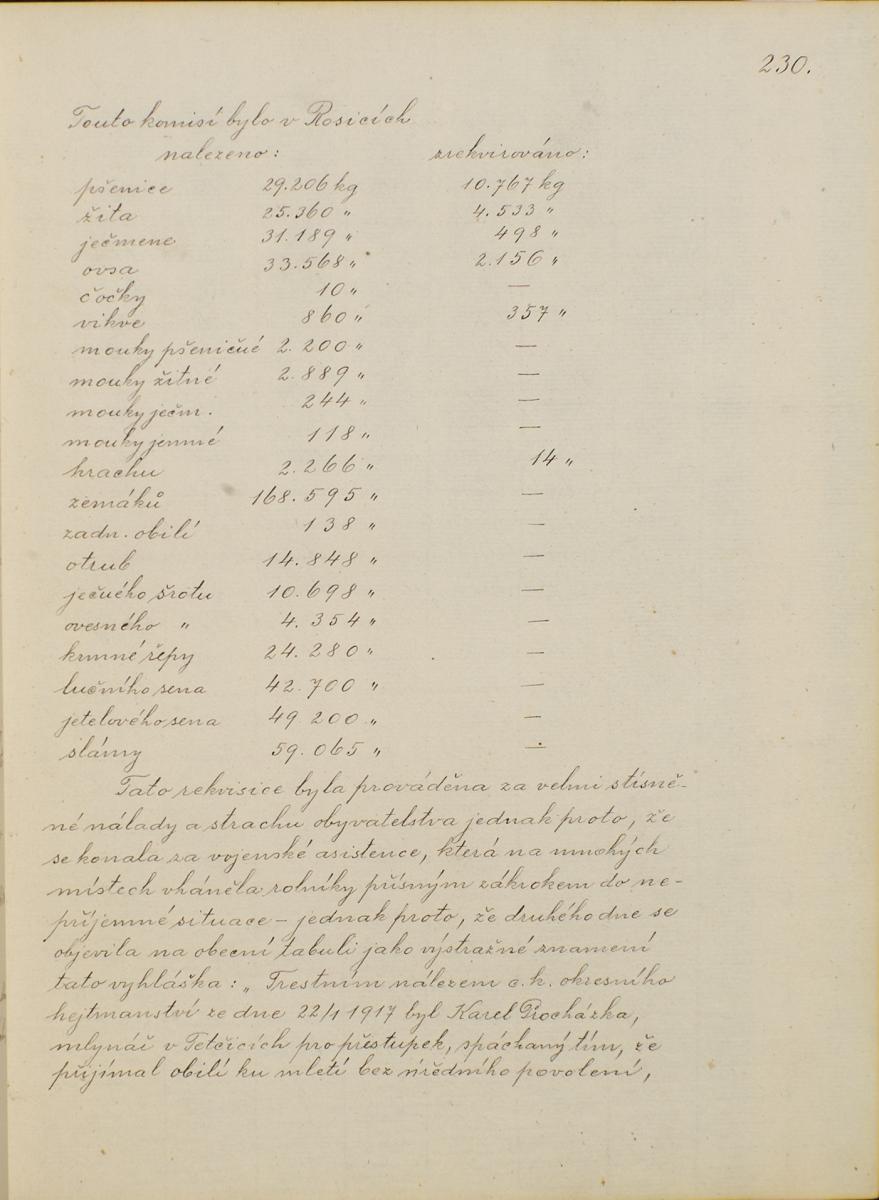 230.
Touto komisí bylo v Rosicích
nalezeno: zrekvirováno:
pšenice 29.206 kg 10.767 kg
žita 25.360 „ 4.533 „
ječmene 31.189 „ 498 „
ovsa 33.568 „ 2.156 „
čočky 10 „ —
vikve 860 „ 357 „
mouky pšeničné 2.200 „ —
mouky žitné 2.889 „ —
mouky ječm. 244 „ —
mouky jemné 118 „ —
hrachu 2.266 „ 14 „
zemáků 168.595 „ —
zadn. obilí 138 „ —
otrub 14.848 „ —
ječného šrotu 10.698 „ —
ovesného „ 4.354 „ —
krmné řepy 24.280 „ —
lučního sena 42.700 „ —
jetelového sena 49.200 „ —
slámy 59.065 „ —
Tato rekvisice byla prováděna za velmi stísně-
né nálady a strachu obyvatelstva jednak proto, že
se konala za vojenské asistence, která na mnohých
místech vháněla rolníky přísným zákrokem do ne-
příjemné situace – jednak proto, že druhého dne se
objevila na obecní tabuli jako výstražné znamení
tato vyhláška: „Trestním nálezem c. k. okresního
hejtmanství ze dne 22/1 1917 byl Karel Procházka,
mlynář v Tetčicích pro přestupek, spáchaný tím, že
přijímal obilí ku mletí bez úředního povolení,